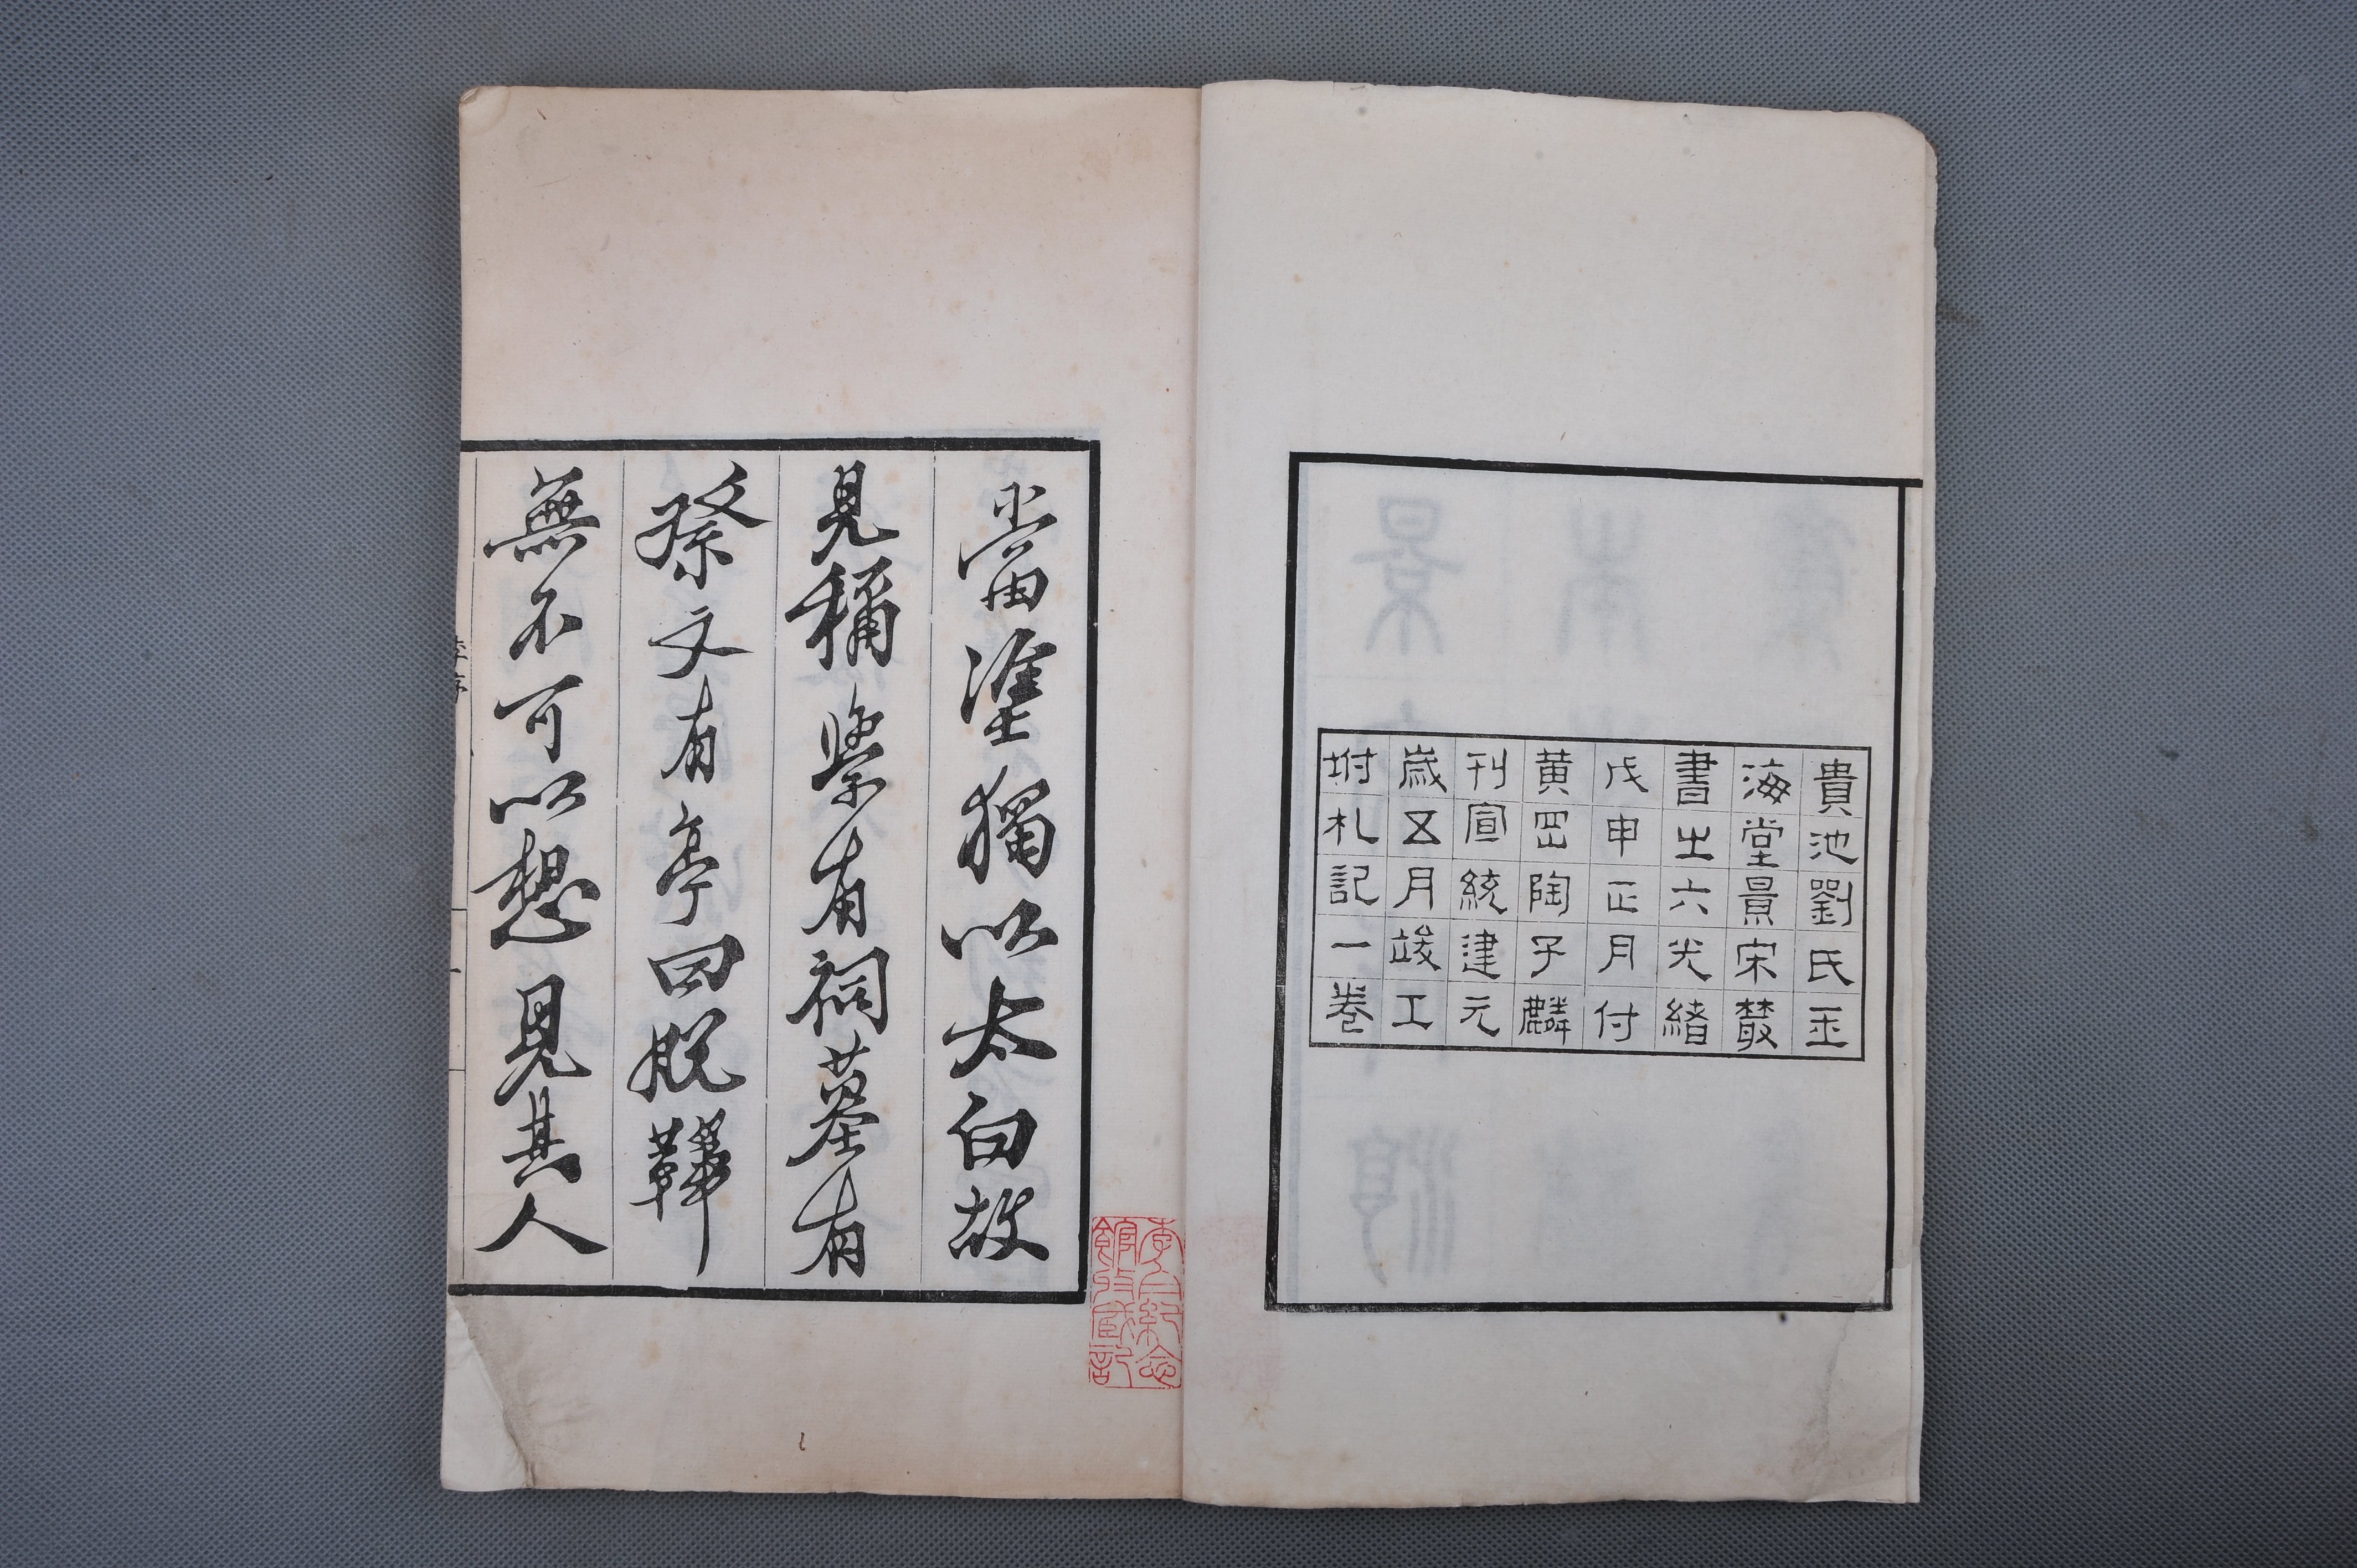 貴池劉氏玉
海堂景宋叢
書之六光緒
戊申正月付
黃岡陶子麟
刊宣統建元
歲五月竣工
坿札記一卷
當塗獨以太白故
見稱有祠墓有
祭文有亭曰脫鞾
無不可以想見其人
李白紀念
館收藏記